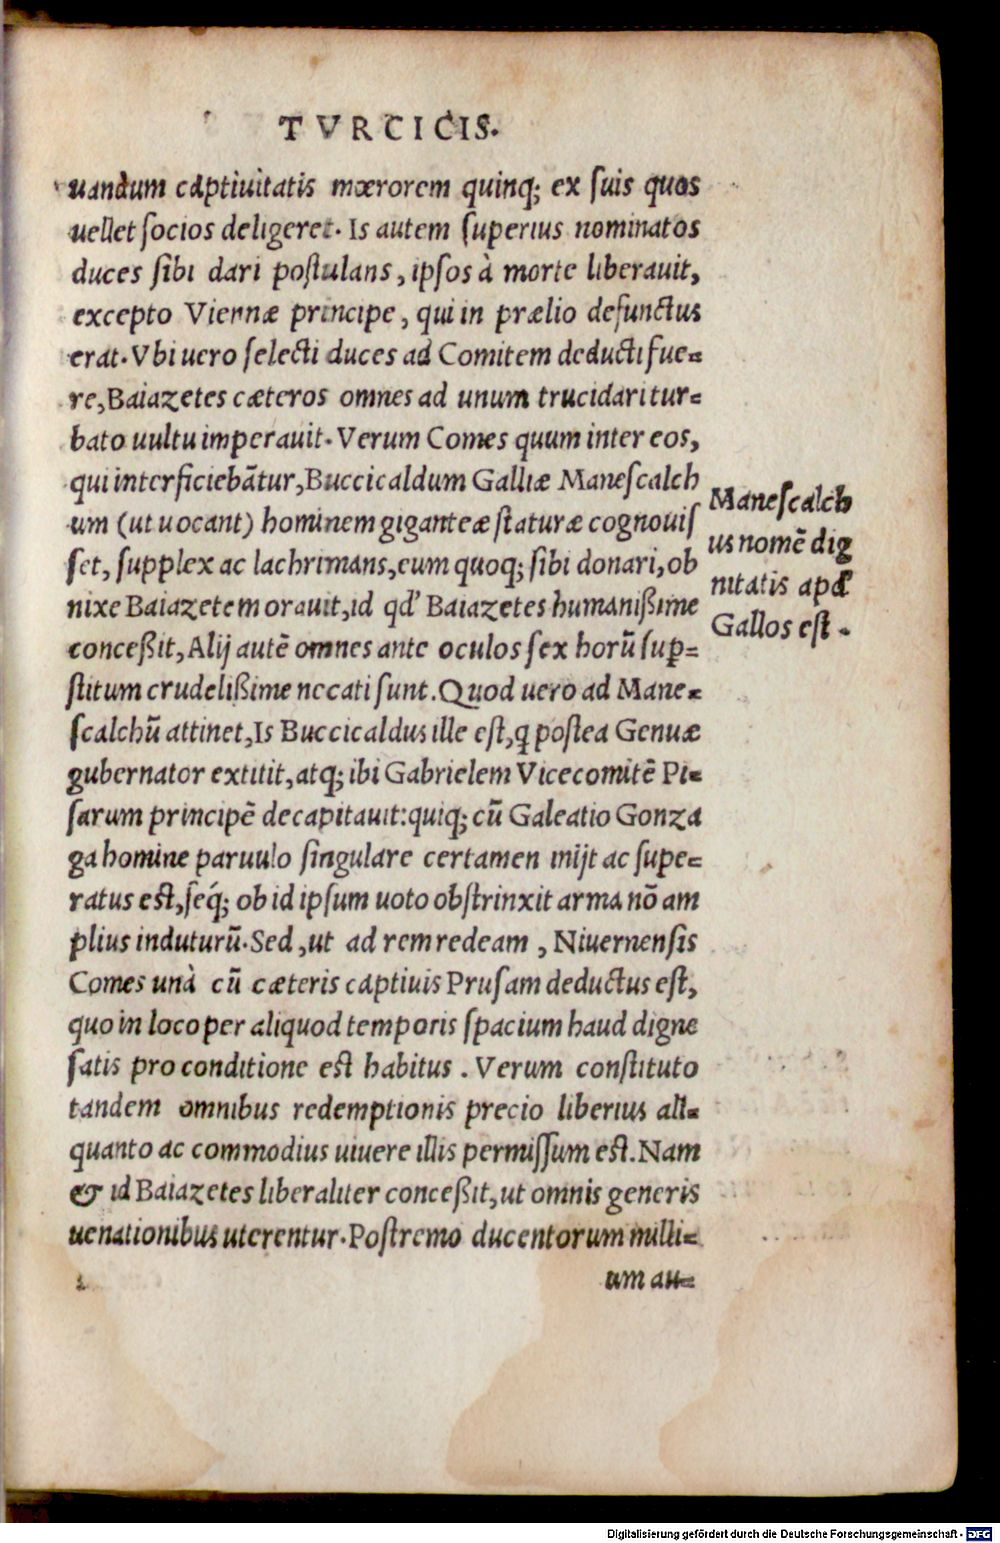 TVRCICIS.
uandum captiuitatis mœrorem quinq; ex ſuis quos
uellet ſocios deligeret. Is autem ſuperius nominatos
duces ſibi dari poſtulans, ipſos à morte liberauit,
excepto Viennæ principe, qui in prælio defunctus
erat. Vbi uero ſelecti duces ad Comitem deducti fue=
re, Baiazetes cæteros omnes ad unum trucidari tur=
bato uultu imperauit. Verum Comes quum inter eos,
qui interficiebātur, Buccicaldum Galliæ Maneſcalch
um (ut uocant) hominem giganteæ ſtaturæ cognouiſ
ſet, ſupplex ac lachrimans, eum quoq; ſibi donari, ob
nixe Baiazetem orauit, id qd' Baiazetes humanißime
conceßit, Alij autē omnes ante oculos ſex horū ſuꝑ=
ſtitum crudelißime necati ſunt. Quod uero ad Mane=
ſcalchū attinet, Is Buccicaldus ille eſt, q poſtea Genuæ
gubernator extitit, atq; ibi Gabrielem Vicecomitē Pi=
ſarum principē decapitauit: quiq; cū Galeatio Gonza
ga homine paruulo ſingulare certamen inijt ac ſupe=
ratus eſt, ſeq́; ob id ipſum uoto obſtrinxit arma nō am
plius induturū. Sed, ut ad rem redeam, Niuernenſis
Comes unà cū cæteris captiuis Pruſam deductus eſt,
quo in loco per aliquod temporis ſpacium haud digne
ſatis pro conditione eſt habitus. Verum conſtituto
tandem omnibus redemptionis precio liberius ali=
quanto ac commodius uiuere illis permiſſum eſt. Nam
& id Baiazetes liberaliter conceßit, ut omnis generis
uenationibus uterentur. Poſtremo ducentorum milli=
um au=
Maneſcalch
us nomē dig
nitatis apd'
Gallos eſt.
Digitalisierung gefördert durch die Deutsche Forschungsgemeinschaft - DFG